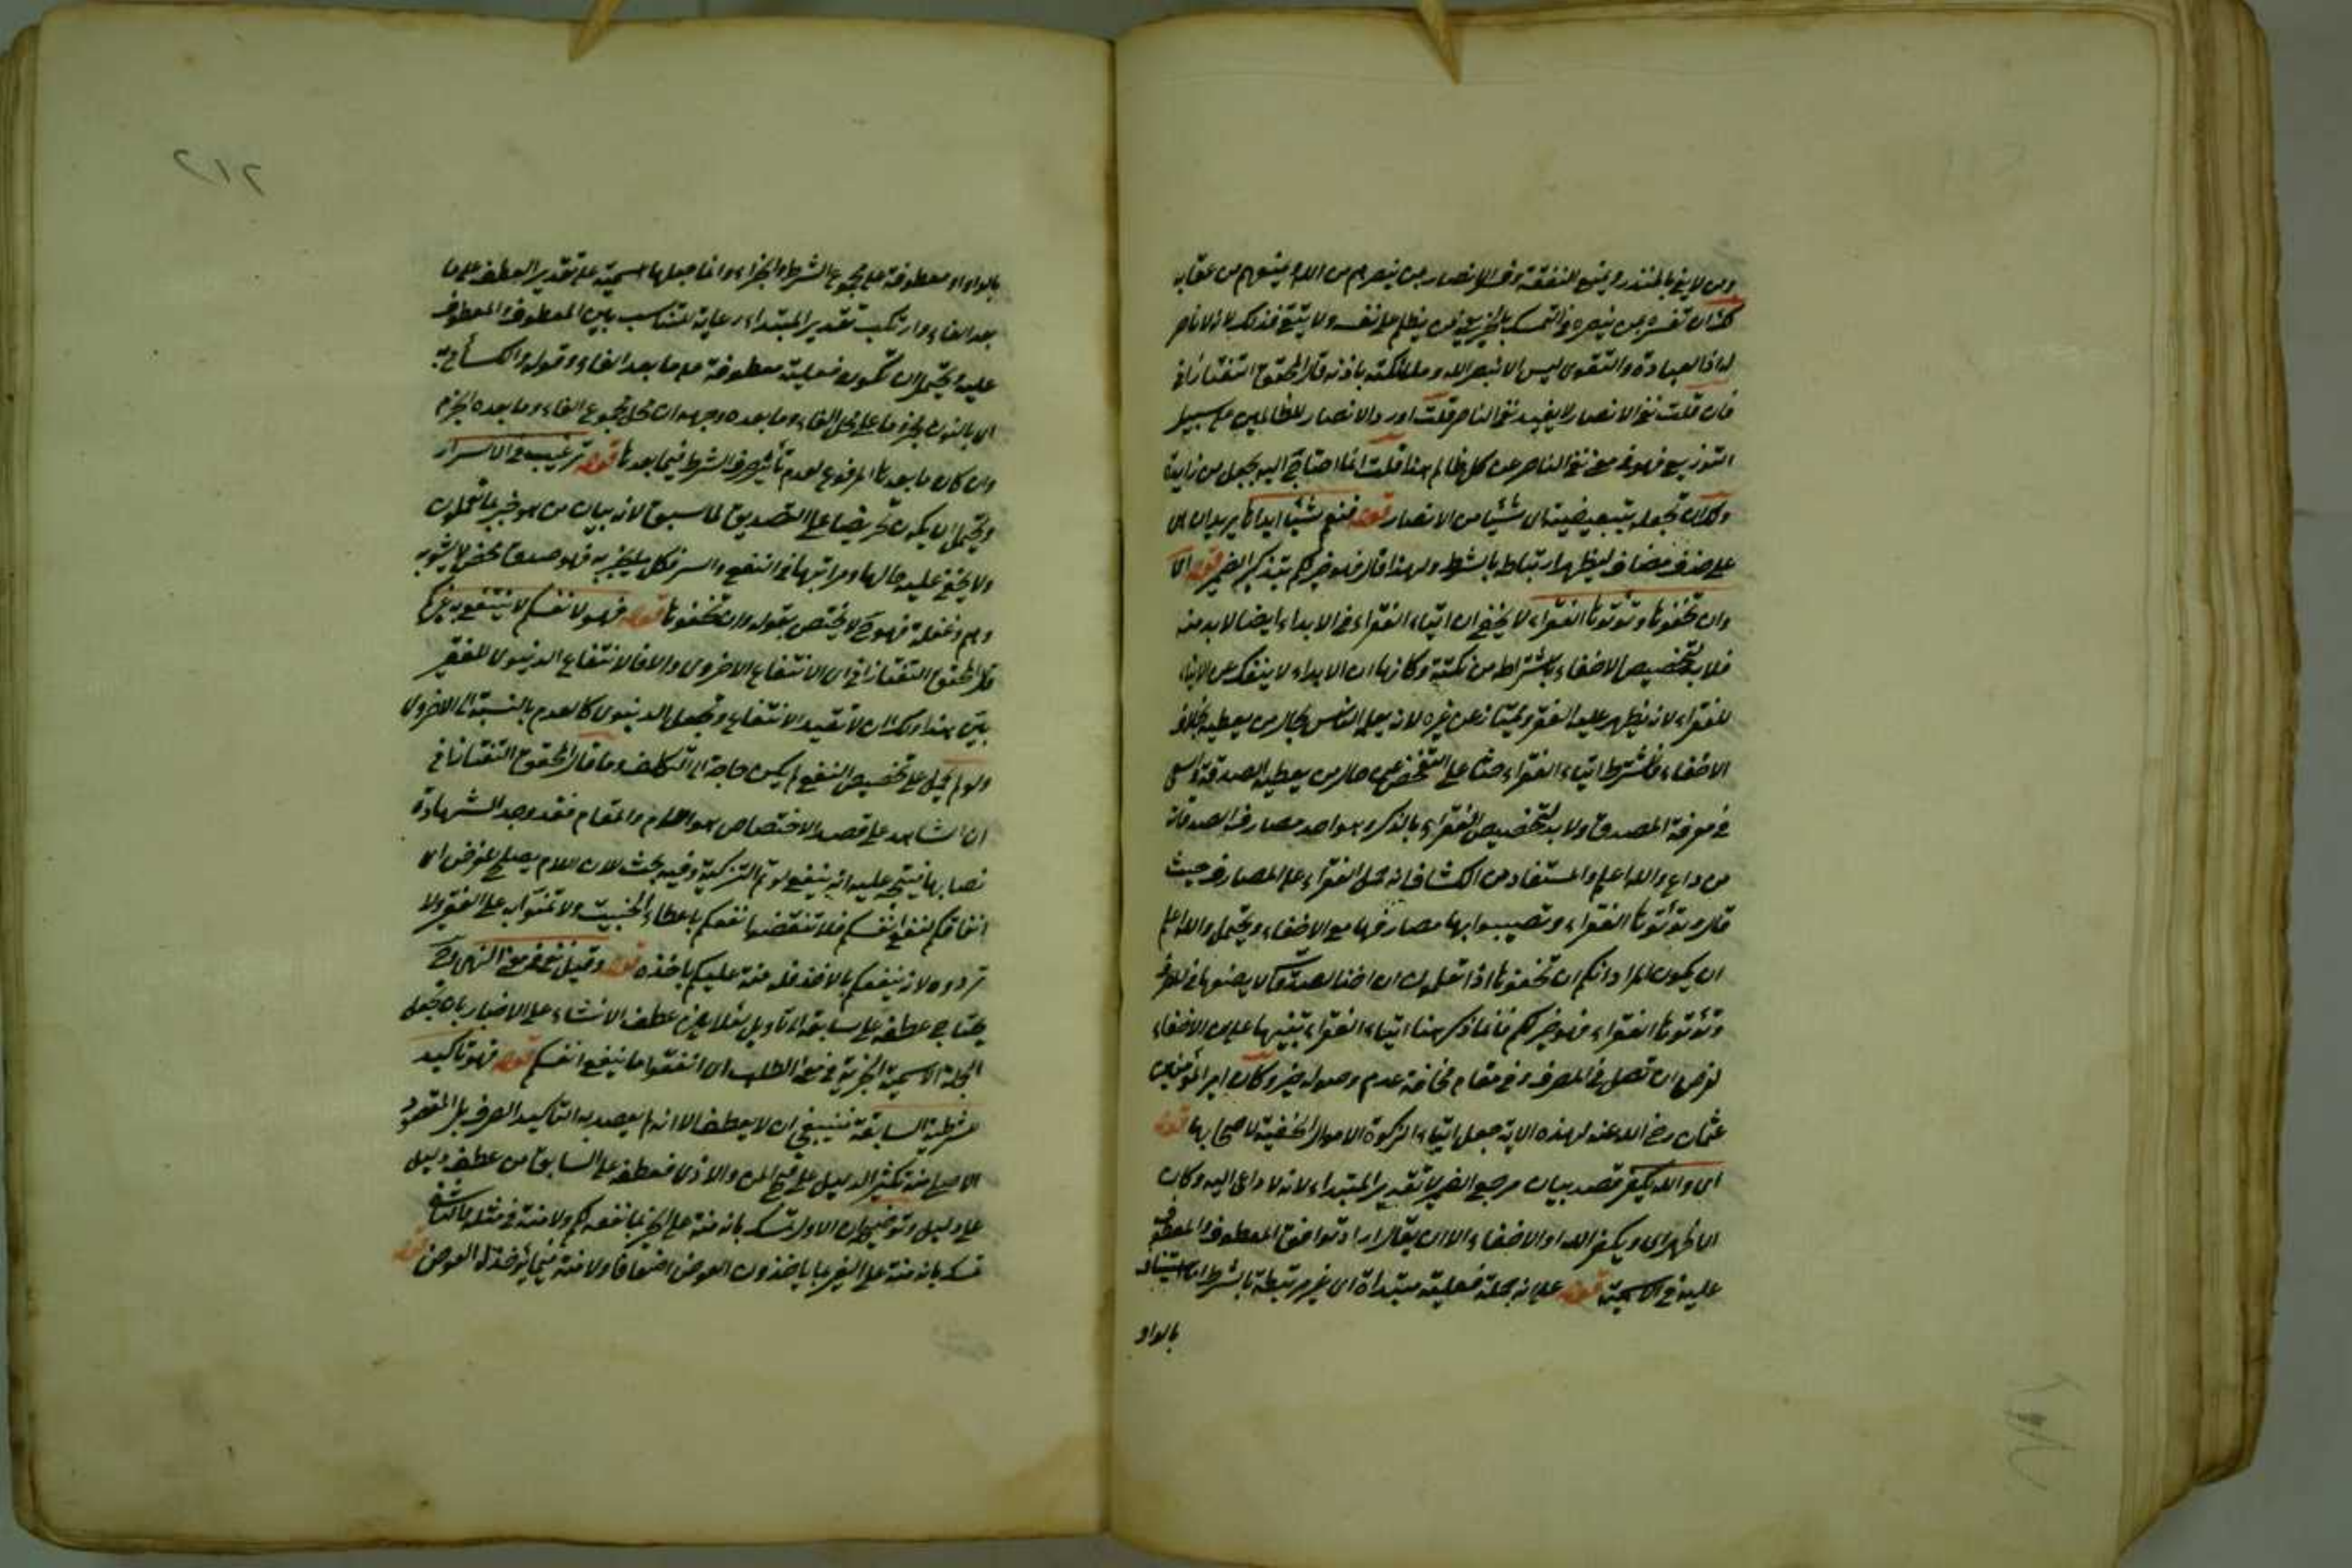 ومن لا يفي بالمنذر ويمنع النفقة وفسر الانصار بمن ينصرهم من الله ويمنعهم من عقابه
لك ان تفسره بمن ينصره في التمسك فمن يظلم على نفسه ولا يتبع فذلك لانه لا ناصر
له اذ العبادة والتقوى ليس الا بنصر الله وملائكته باذنه قال المحقق التفتازاني
فان قلت نفي الانصار لا يفيد نفي الناصر قلت اورد الانصار للظالمين على سبيل
التوزيع فهو في معنى نفي الناصر عن كل ظالم هذا قلت انما احتاج اليه بجعل من زايدة
ولك ان تجعله تبعيضية اى شيئا من الانصار قوله فنعم شيئا ابداؤها يريد ان
على حذف مضاف ليظهر ارتباط بالشرط ولهذا قال فهو خير لكم بتذكير الضمير قوله
وان تخفوها وتؤتوها الفقراء لا يخفى ان ايتاء الفقراء في الابداء ايضا لا بد منه
فلا بد لتخصيص الاخفاء باشتراطه من نكتة وكانها ان الابداء لا ينفك عن الايتاء
للفقراء لانه يظهر عليه الفقر ويمتاز عن غيره لانه يعلم الناس بحال من يعطيه بخلاف
الاخفاء فاشترط ايتاء الفقراء حثا على التفحص عن حال من يعطيه الصدقة
في معرفة المصدق ولا بد لتخصيص الفقراء بالذكر وهو احد مصارف الصدقات
من داع والله اعلم والمستفاد من الكشاف انه حمل الفقراء على المصارف حيث
قال وتؤتوها الفقراء وتصيبوا بها مصارفها مع الاخفاء ويحتمل والله اعلم
ان يكون المراد انكم ان تخفوها اذا تعلمون ان اخفاء الصدقة لا يضعها في
وتؤتوها الفقراء فهو خير لكم فانما ذكر هنا ايتاء الفقراء تنبيها على ان الاخفاء
لغرض ان تصل في المصرف وفي مقام مخافة عدم وصوله خير وكان امير المؤمنين
عثمان رضي الله عنه لهذه الاية جعل ايتاء الزكوة الاموال الخفية لاصحابها قوله
اى والله يكفر قصد بيان مرجع الضمير لا تقدير المبتداء لانه لا داعى اليه وكان
الاظهر اى ويكفر الله او الاخفاء الا ان يقال اراد توافق المعطوف والمعطوف
عليه في الاسمية قوله على انه جملة فعلية مبتداة اى غير مرتبطة بالشرط اما استيناف
بالواو
بالواو او معطوفة على مجموع الشرط والجزاء وانما جعلها اسمية على تقدير العطف على ما
بعد الفاء وارتكب تقدير المبتداء رعاية للتناسب بين المعطوف والمعطوف
عليه ويحتمل ان تكون فعلية معطوفة على ما بعد الفاء وقوله والكسائي به
اى بالنون مجزوما على محل الفاء وما بعده وجهه ان محل مجموع الفاء وما بعده الجزم
وان كان ما بعدها المرفوع لعدم تأثير حرف الشرط فيما بعدها قوله ترغيب في الاسرار
ويحتمل ان يكون تحريضا على التصديق لما سبق لانه بيان من هو خبير بما تعملون
ولا يخفى عليه حالها ومراتبها في النفع والسر فكل ما يخبر به فهو صدق محض لا يشوبه
وهم وغفلة فهو ح لا يختص بقوله وان تخفوها قوله فهو لانفسكم لا ينتفع به غيركم
قال المحقق التفتازاني اى الانتفاع الاخروى والا فالانتفاع الدنيوى للفقير
بيّن هذا ولك ان لا تقيد الانتفاع وتجعل الدنيوى كالعدم بالنسبة الى الاخروى
ولو لم يحمل على تخصيص النفع لم يكن حاجة الى التكلف وما قال المحقق التفتازاني
ان الشاهد على قصد الاختصاص هو اللام والمقام فقد وجد الشهادة
نصابها فيتجه عليه انه ينفع لو تم التزكية وفيه بحث لان اللام يصلح لغرض ان
انفاقكم لنفع انفسكم فلا تنقضوا نفعكم باعطاء الخبيث ولا تمنوا به على الفقير ولا
تردوه لانه ينفعكم بالاخذ فله منة عليكم باخذه قوله وقيل نفي في معنى النهي وح
يحتاج عطفه على سابقه الى تأويل لئلا يلزم عطف الانشاء على الاخبار بان يجعل
الجملة الاسمية الخبرية في معنى الطلب اى انفقوا ما ينفع انفسكم قوله فهو تاكيد
للشرطية السابقة فينبغي ان لا يعطف الا انه لم يقصد به التاكيد الصرف بل المقصود
الاصلي منه تكثير الدليل على قبح المن والاذى فعطفه على السابق من عطف دليل
على دليل وتوضيحه ان الاول تمسك بانه منة على الغير بما نفعه لكم ولا منة في مثله
تمسك بانه منة على الغير بما ياخذون العوض اضعافا ولا منة فيما يؤخذ له العوض قوله